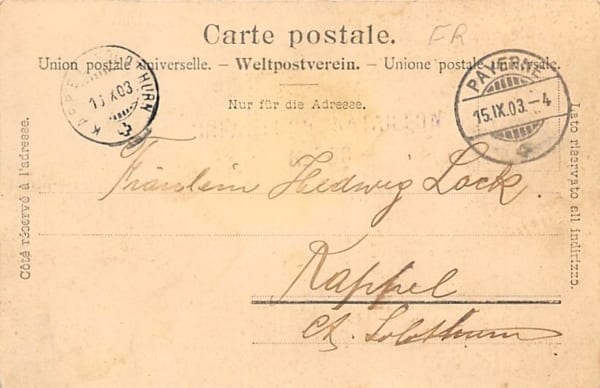 Carte postale.
FR
Union postale universelle. – Weltpostverein. – Unione postale universale.
Nur für die Adresse.
KAPPEL (SOLOTHURN)
16.IX.03.
PAYERNE
15.IX.03.–4
Côté réservé à l'adresse.
Lato riservato all indirizzo.
Fräulein Hedwig Lack.
Kappel
Ct. Solothurn